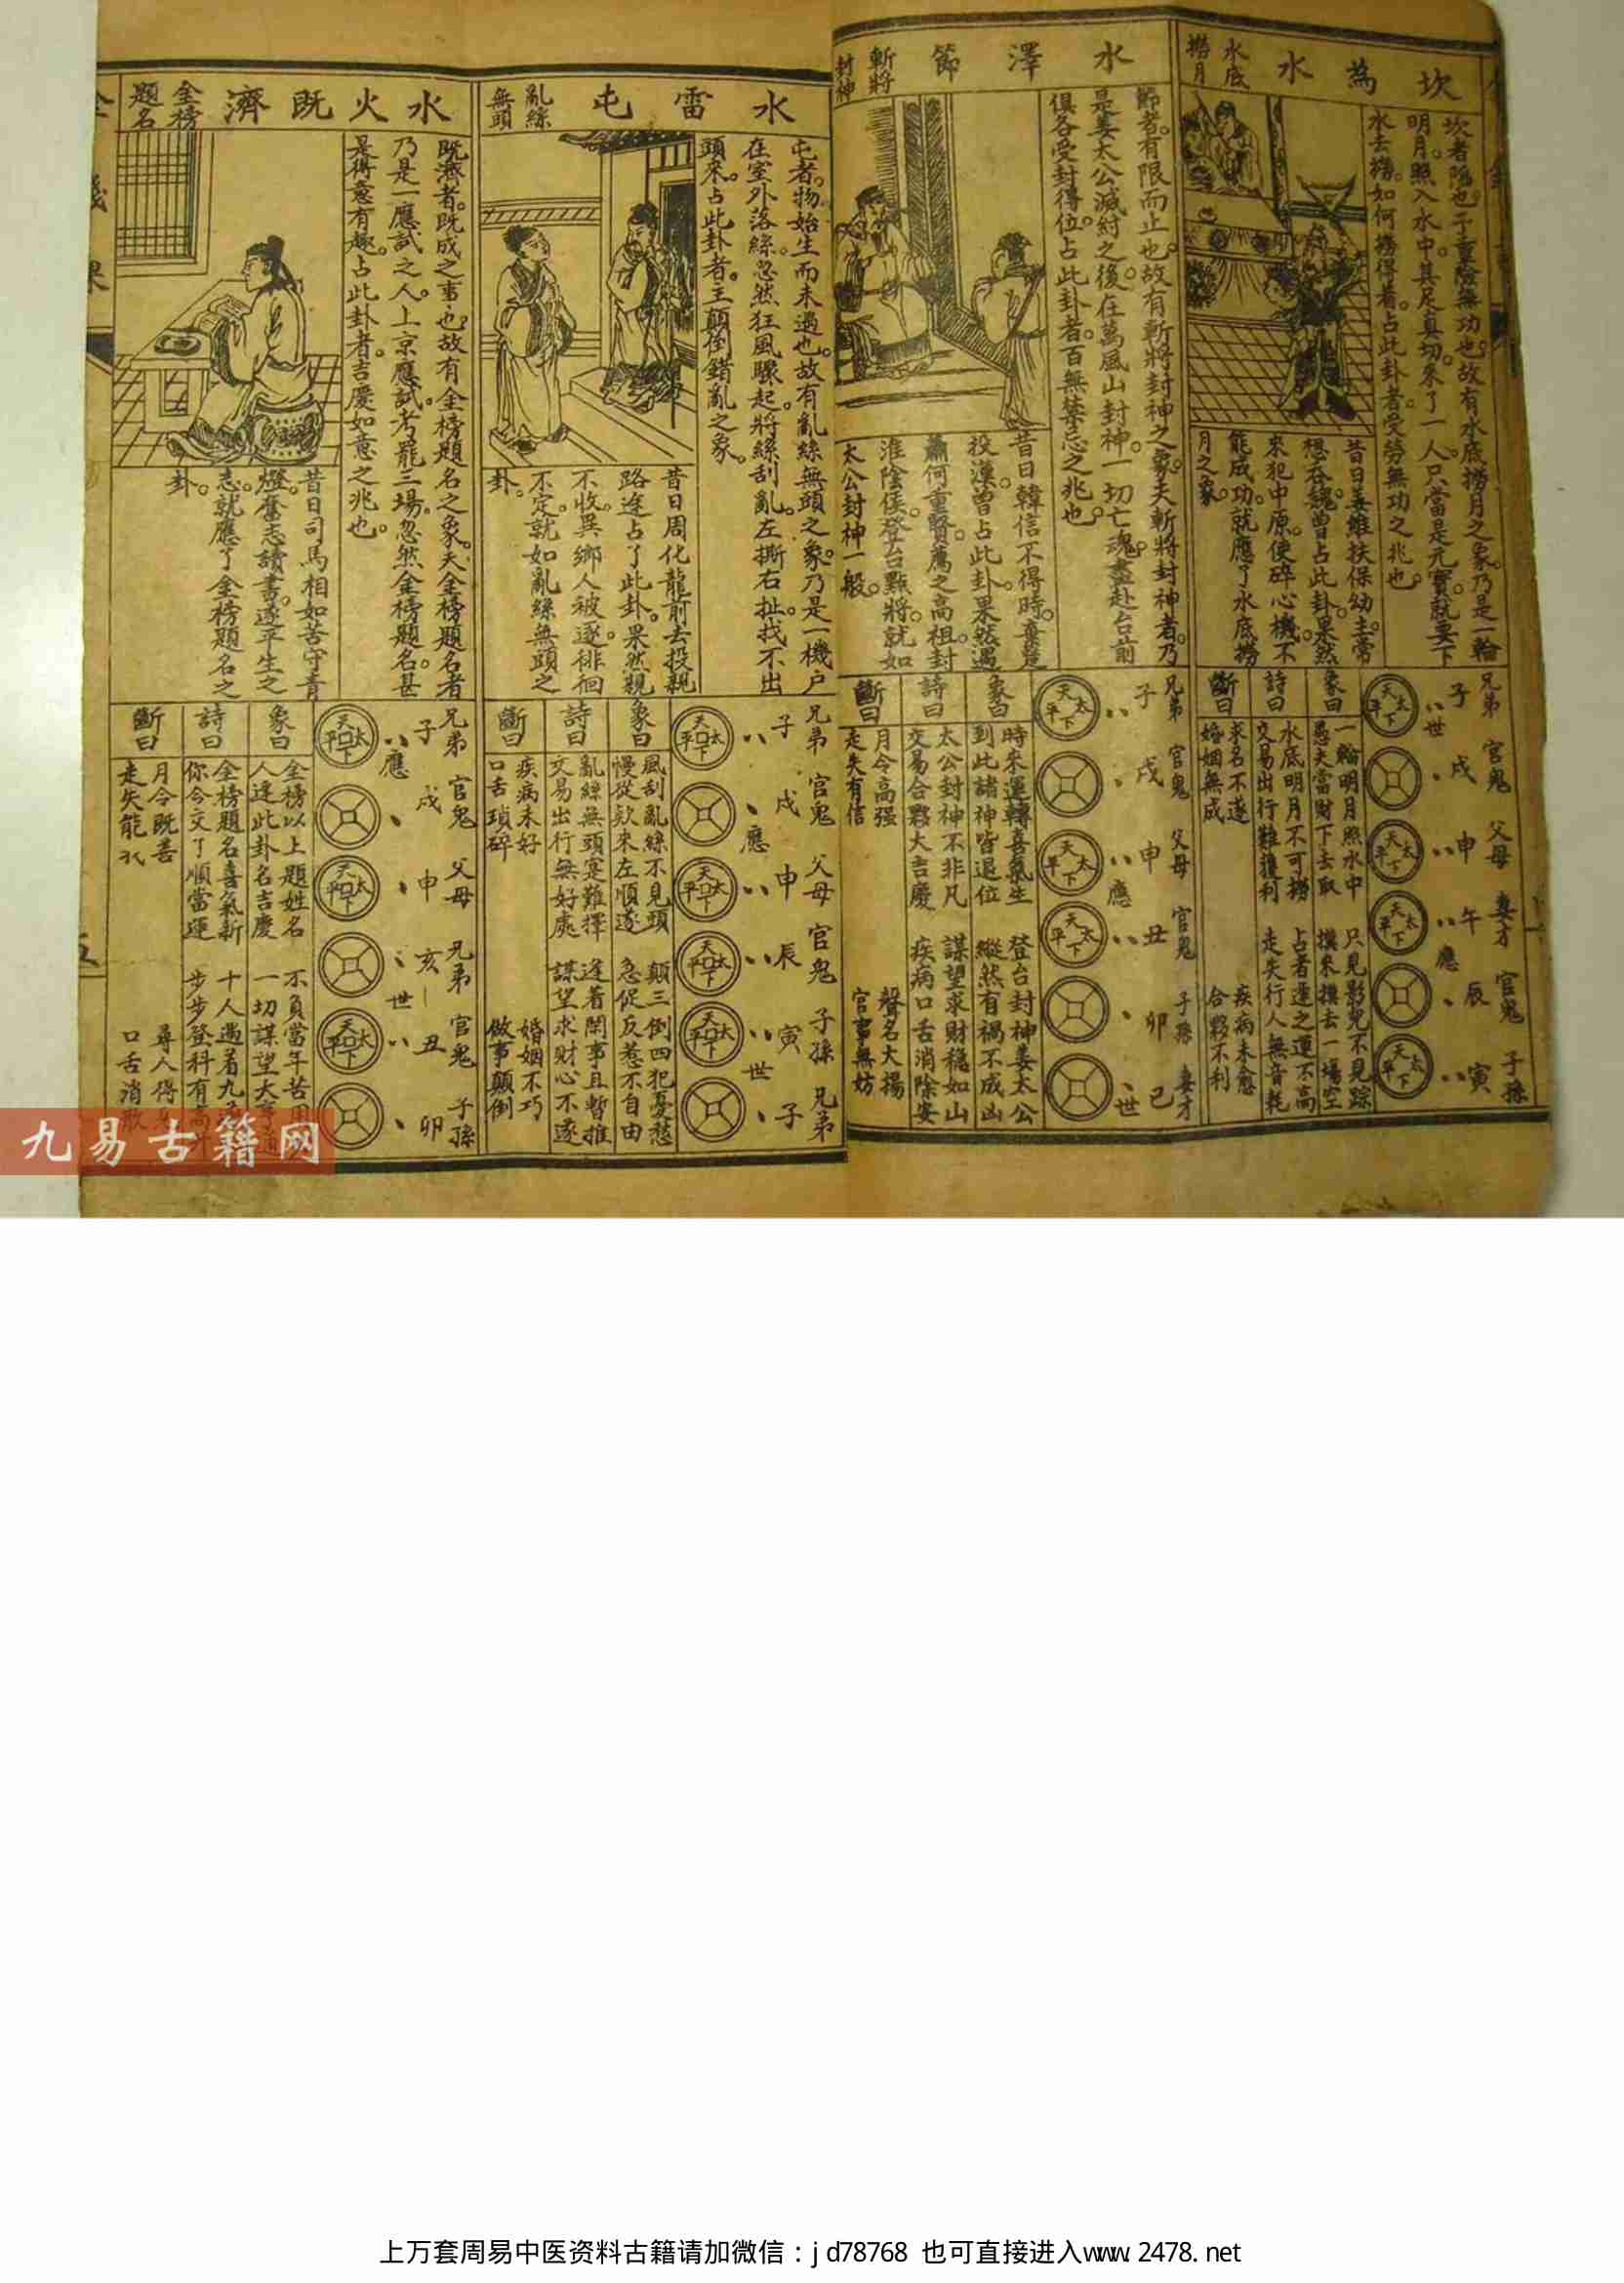 坎為水
水底
撈月
坎者陷也于重險無功也故有水底撈月之象乃是一輪
明月照入水中其足真切來了一人只當是元寶就要下
水去撈如何撈得着占此卦者受勞無功之兆也
昔日姜維扶保幼主常
想吞魏曾占此卦果然
來犯中原使碎心機不
能成功就應了水底撈
月之象
兄弟 官鬼 父母 妻才 官鬼 子孫
子 戌 申 午 辰 寅
世 應
象曰
一輪明月照水中 只見影兒不見踪
愚夫當財下去取 摸來摸去一場空
詩曰
水底明月不可撈 占者逢之運不高
交易出行難獲利 走失行人無音耗
斷曰
求名不遂 疾病未愈
婚姻無成 合夥不利
水澤節
斬將
封神
節者有限而止也故有斬將封神之象夫斬將封神者乃
是姜太公滅紂之後在萬風山封神一切亡魂盡赴台前
俱各受封得位占此卦者百無禁忌之兆也
昔日韓信不得時棄楚
投漢曾占此卦果然遇
蕭何重賢薦之高祖封
淮陰侯登台點將就如
太公封神一般
兄弟 官鬼 父母 官鬼 子孫 妻才
子 戌 申 丑 卯 巳
應 世
象曰
時來運轉喜氣生 登台封神姜太公
到此諸神皆退位 縱然有禍不成凶
詩曰
太公封神不非凡 謀望求財穩如山
交易合夥大吉慶 疾病口舌消除安
斷曰
月令高强 聲名大揚
走失有信 官事無妨
水雷屯
亂絲
無頭
屯者物始生而未通也故有亂絲無頭之象乃是一機户
在室外落絲忽然狂風驟起將絲刮亂左撕右扯找不出
頭來占此卦者主顛倒錯亂之象
昔日周化龍前去投親
路途占了此卦果然親
不收異鄉人被逐徘徊
不定就如亂絲無頭之
卦
兄弟 官鬼 父母 官鬼 子孫 兄弟
子 戌 申 辰 寅 子
應 世
象曰
風刮亂絲不見頭 顛三倒四犯憂愁
慢從欸來左順遂 急促反惹不自由
詩曰
亂絲無頭定難擇 逢着閑事且暫推
交易出行無好處 謀望求財心不遂
斷曰
疾病未好 婚姻不巧
口舌瑣碎 做事顛倒
水火既濟
金榜
題名
既濟者既成之事也故有金榜題名之象夫金榜題名者
乃是一應試之人上京應試考罷三場忽然金榜題名甚
是得意有趣占此卦者吉慶如意之兆也
昔日司馬相如苦守青
燈奮志讀書遂平生之
志就應了金榜題名之
卦
兄弟 官鬼 父母 兄弟 官鬼 子孫
子 戌 申 亥 丑 卯
應 世
象曰
金榜以上題姓名 不負當年苦用
人逢此卦名吉慶 一切謀望大亨通
詩曰
金榜題名喜氣新 十人遇着九
你今交了順當運 步步登科有高
斷曰
月令既善 尋人得
走失能 口舌消散
天下太平
九易古籍网
上万套周易中医资料古籍请加微信：jd78768 也可直接进入www.2478.net